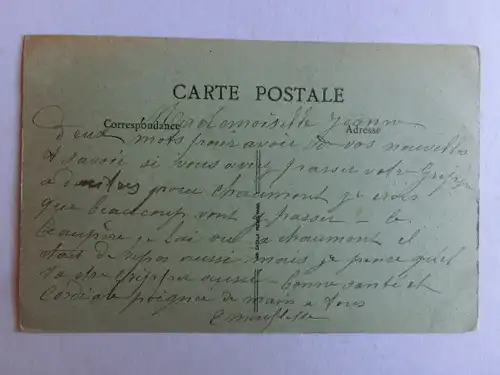 CARTE POSTALE
Correspondance Adresse
Mademoiselle Jeanne
deux mots pour avoir de vos nouvelles
et savoir si vous avez passer votre
a pour chaumont je crois
que beaucoup vont y passer le
beaupère je lai vu a chaumont il
etait de repos aussi mais je pense qu'il
va etre aussi bonne santé et
cordiale poignée de main a tous